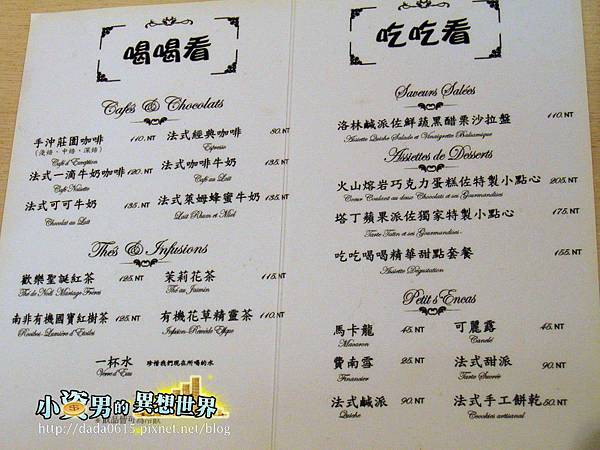 喝喝看
Cafés & Chocolats
手沖莊園咖啡 110.NT
(淺焙、中焙、深焙)
Café d'Exception
法式經典咖啡 80.NT
Espresso
法式一滴牛奶咖啡 120.NT
Café Noisette
法式咖啡牛奶 135.NT
Café au Lait
法式可可牛奶 135.NT
Chocolat au Lait
法式萊姆蜂蜜牛奶 135.NT
Lait Rhum et Miel
Thés & Infusions
歡樂聖誕紅茶 125.NT
Thé de Noël Mariage Frères
茉莉花茶 115.NT
Thé au Jasmin
南非有機國寶紅樹茶 125.NT
Rooibos-Lumière d'Etoiles
有機花草精靈茶 110.NT
Infusion-Remède Elfique
一杯水 珍惜我們現在所喝的水
Verre d'Eau
吃吃看
Saveurs Salées
洛林鹹派佐鮮蔬黑醋栗沙拉盤 110.NT
Assiette Quiche Salade et Vinaigrette Balsamique
Assiettes de Desserts
火山熔岩巧克力蛋糕佐特製小點心 205.NT
Coeur Coulant au douse Chocolats et ses Gourmandises
塔丁蘋果派佐獨家特製小點心 175.NT
Tarte Tatin et ses Gourmandises
吃吃喝喝精華甜點套餐 155.NT
Assiette Dégustation
Petit's Encas
馬卡龍 45.NT
Macaron
可麗露 45.NT
Canelé
費南雪 25.NT
Financier
法式甜派 90.NT
Tarte Sucrée
法式鹹派 90.NT
Quiche
法式手工餅乾 50.NT
Coockies artisanal
小資男的異想世界
http://dada0615.pixnet.net/blog